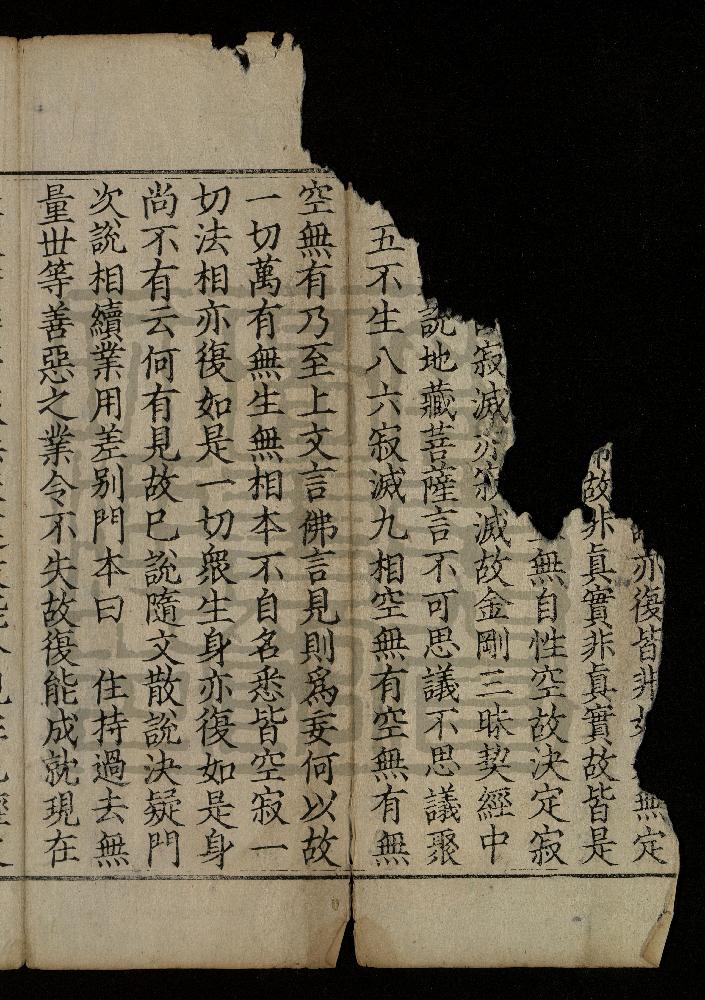 亦復皆非無定
故非眞實非眞實故皆是
無自性空故決定寂
寂滅亦寂滅故金剛三昧契經中
說地藏菩薩言不可思議不思議聚
五不生八六寂滅九相空無有空無有無
空無有乃至上文言佛言見則爲妄何以故
一切萬有無生無相本不自名悉皆空寂一
切法相亦復如是一切衆生身亦復如是身
尚不有云何有見故已說隨文散說決疑門
次說相續業用差别門本曰　住持過去無
量世等善惡之業令不失故復能成就現在